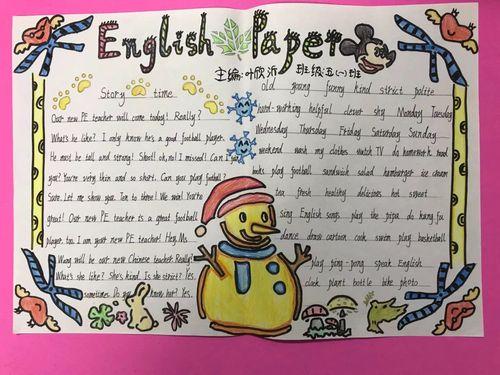 English Paper
主编:叶欣沂 班级:五(一)班
Story time
Our new PE teacher will come today! Really?
What's he like? I only know he's a good football player.
He must be tall and strong! Short! oh, no! I missed! Can I join
you? You're very thin and so short. Can you play football?
Sure. Let me show you. Ten to three! We win! You're
great! Our new PE teacher is a great football
player, too. I am your new PE teacher! Hey, Ms
Wang will be our new Chinese teacher. Really!
What's she like? She's kind. Is she strict? Yes,
sometimes. Do you know her? Yes.
old young funny kind strict polite
hard-working helpful clever shy Monday Tuesday
Wednesday Thursday Friday Saturday Sunday
weekend wash my clothes watch TV do homework read
books play football sandwich salad hamburger ice cream
tea fresh healthy delicious hot sweet
sing English songs play the pipa do kung fu
dance draw cartoon cook swim play basketball
play ping-pong speak English
clock plant bottle bike photo